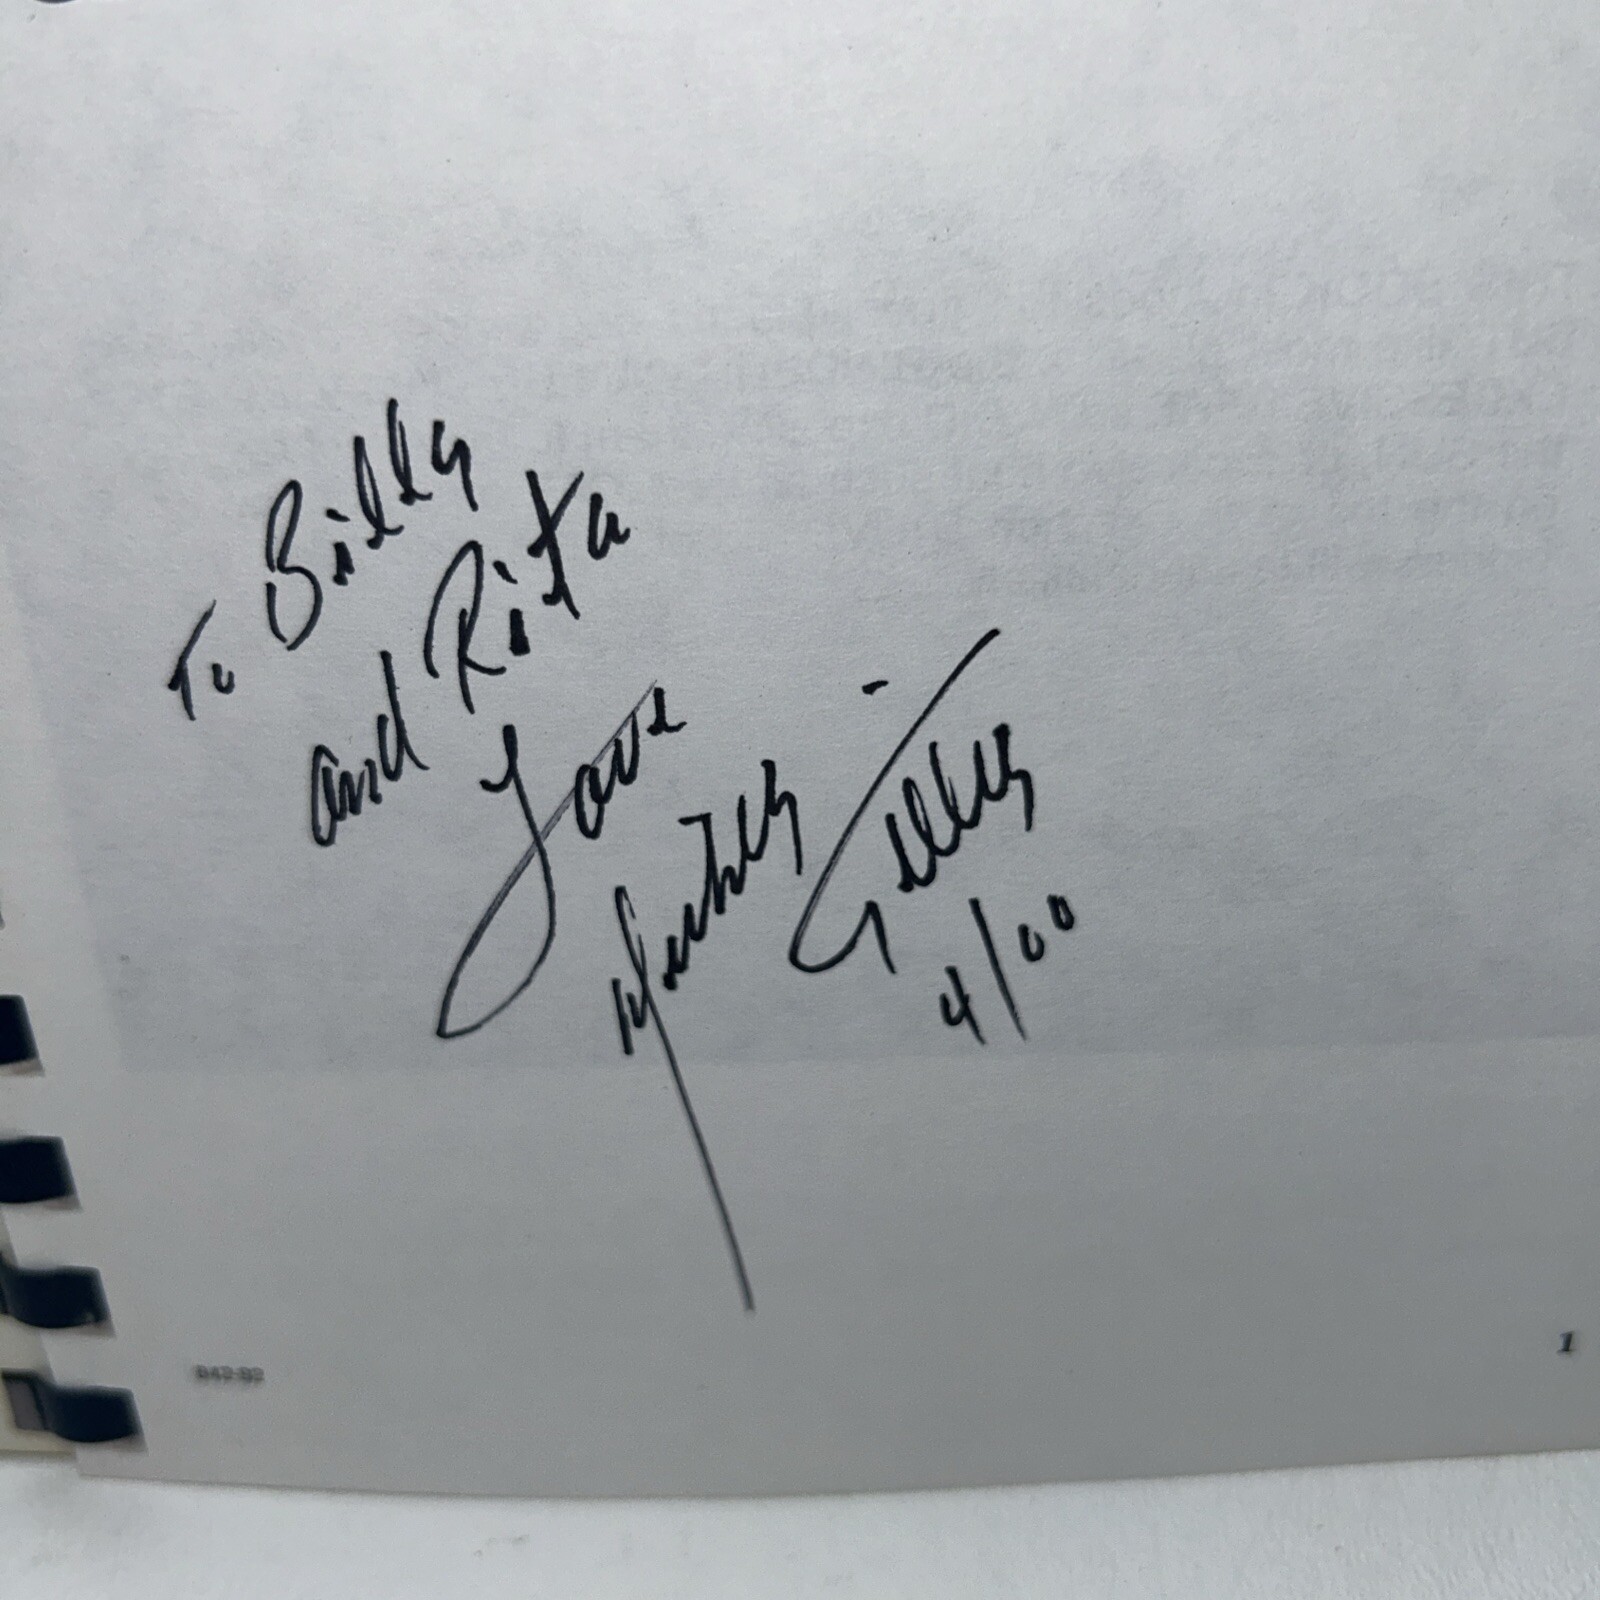 To Billy
and Rita
Love
Mickey Gilley
4/00
1